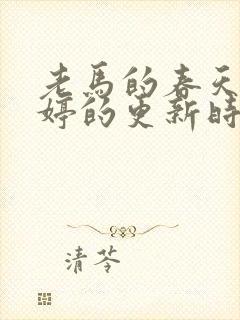 老馬的春天
婷的更新時
清苓